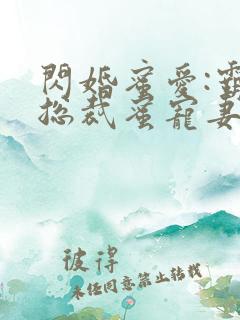 閃婚蜜愛:霸
総裁蜜寵妻
彼得
未任同意禁止转载